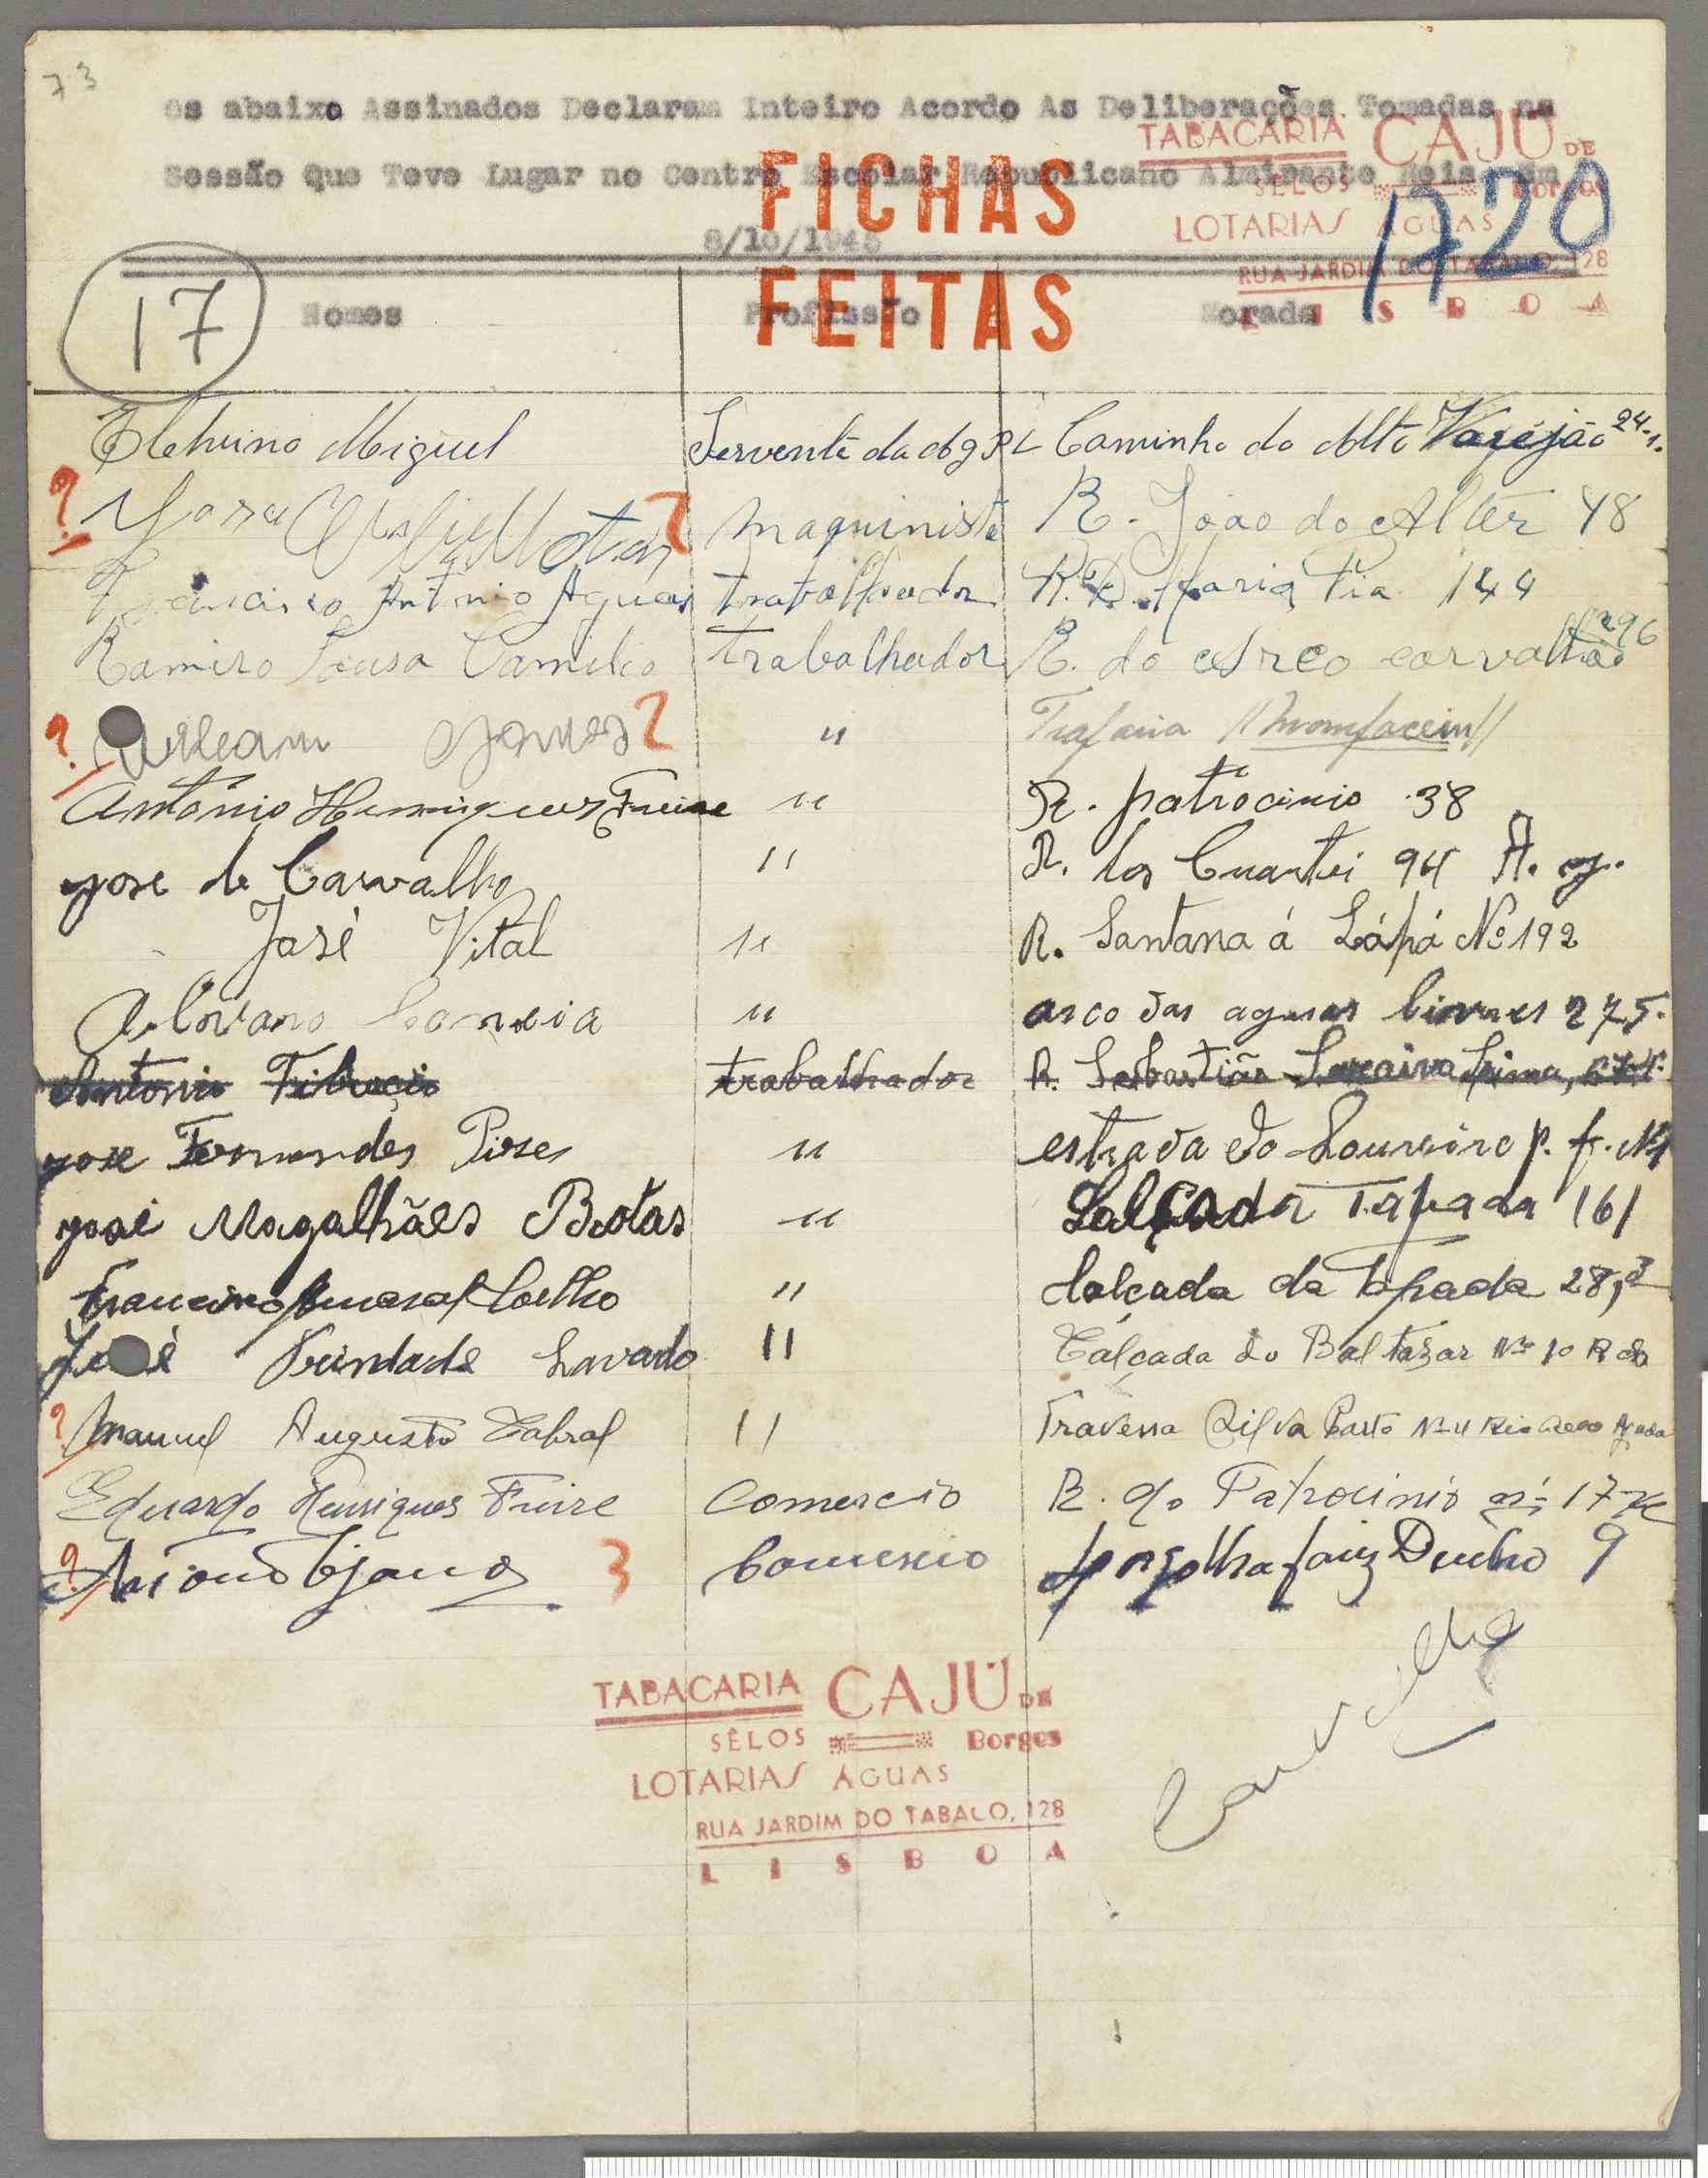 73
Os abaixo Assinados Declaram Inteiro Acordo As Deliberações Tomadas na
Sessão Que Teve Lugar no Centro Escolar Republicano Almirante Reis. Em
8/10/1945
FICHAS
FEITAS
TABACARIA CAJÚ DE
SÊLOS Borges
LOTARIAS ÁGUAS
RUA JARDIM DO TABACO, 128
LISBOA
1720
17
Nomes Profissão Morada
Miguel Servente da Caminho do Alto Varejão 24-1.
? ? maquinista R. João do Alter 48
Francisco António Aguas trabalhador R. D. Maria Pia 144
Ramiro Sousa Camilo trabalhador R. do Arco carvalhão 296
? Gomes ? " Trafaria
António Henriques Freire " R. patrocinio 38
jose de Carvalho " R. dos 94
José Vital " R. Santana á Lápá Nº 192
Correia " arco das aguas livres 275.
Antonio trabalhador R. Sebastião Saraiva Lima, 67
jose Fernandes Pires " estrada do Loureiro p.
josé Magalhães Botas " Calçada Tapada 161
Francisco Amaral Coelho " Calçada da Tapada 28,
José Trindade Lavado " Calçada do Baltazar Nº 10
? Manuel Augusto Cabral " Travessa Silva Porto Nº 4 Rio Seco Ajuda
Eduardo Henriques Freire Comercio R. do Patrocinio nº 17
? 3 Comercio 9
Carvalho
TABACARIA CAJÚ DE
SÊLOS Borges
LOTARIAS ÁGUAS
RUA JARDIM DO TABACO, 128
LISBOA